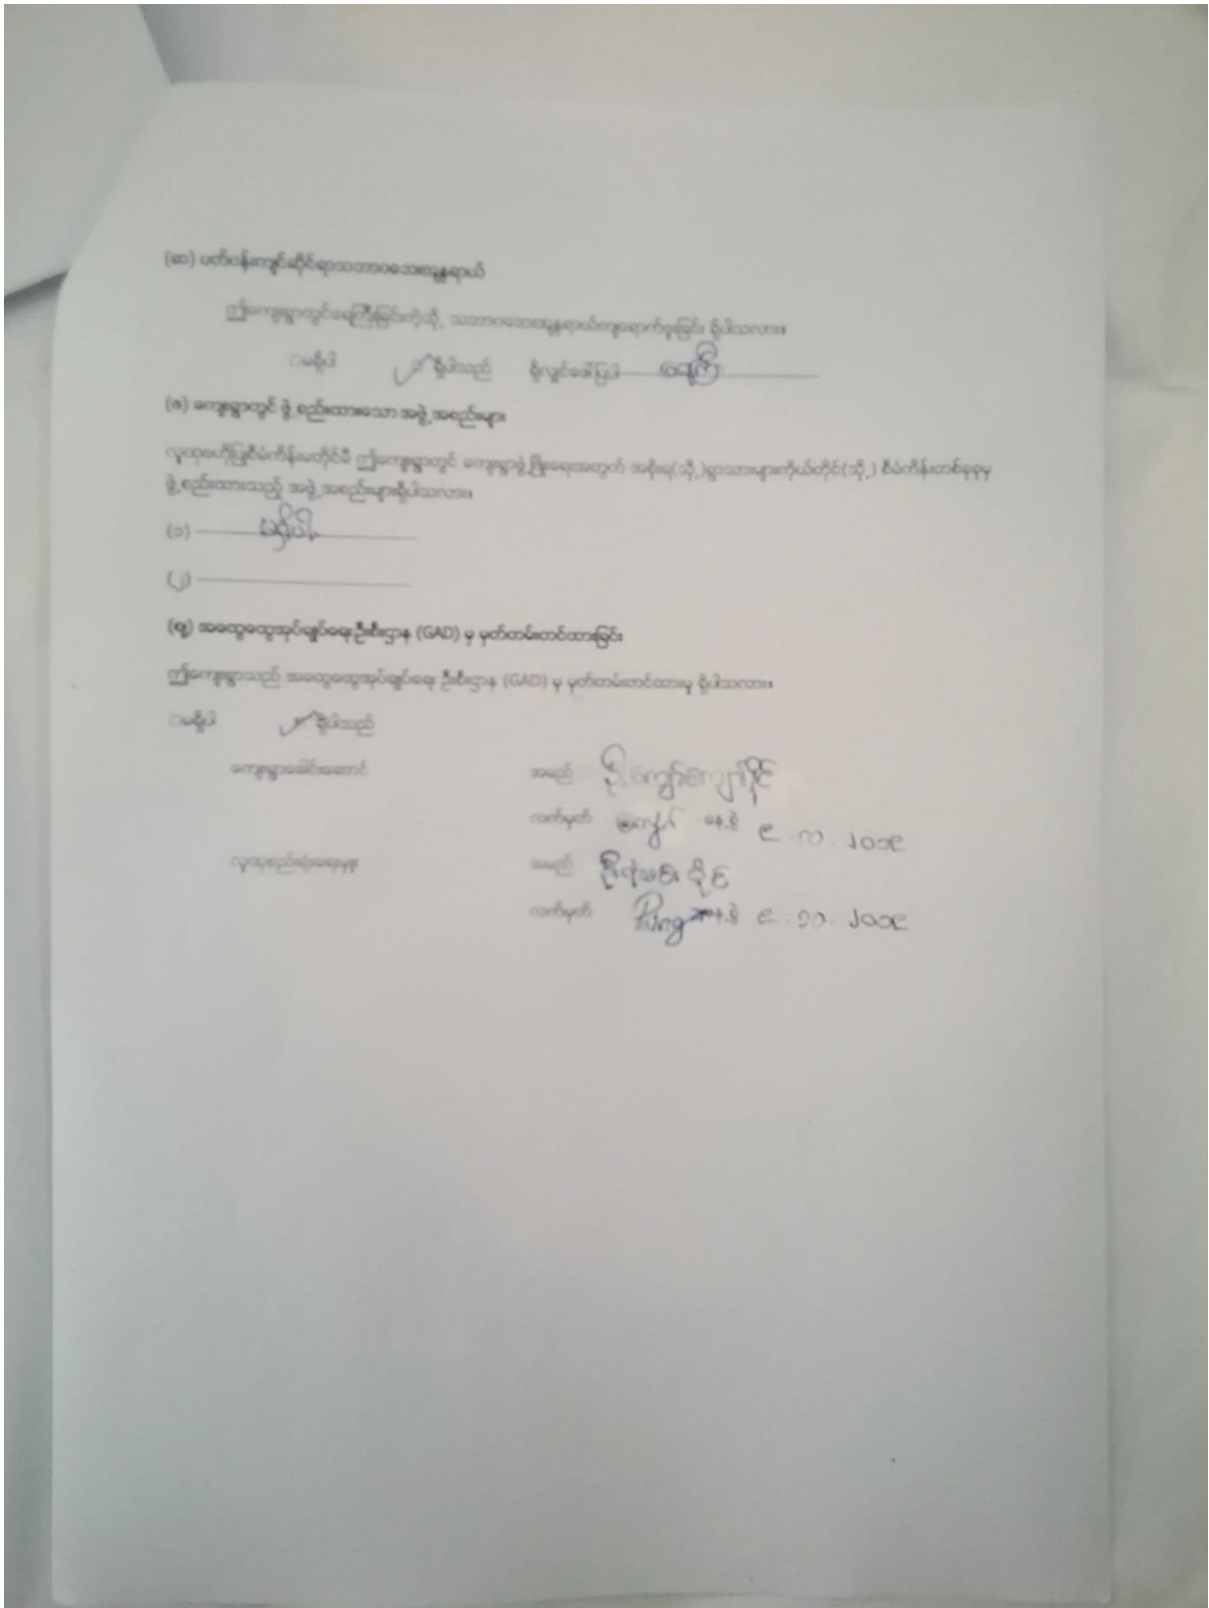 (ဆ) ပတ်ဝန်းကျင်ဆိုင်ရာသဘာဝဘေးအန္တရာယ်
ဤကျေးရွာတွင်ရေကြီးခြင်းကဲ့သို့ သဘာဝဘေးအန္တရာယ်ကျရောက်ဖူးခြင်း ရှိပါသလား။
မရှိပါ ရှိပါသည် ရှိလျှင်ဖေါ်ပြပါ ရေကြီး
(ဇ) ကျေးရွာတွင် ဖွဲ့စည်းထားသော အဖွဲ့အစည်းများ
လူထုဗဟိုပြုစီမံကိန်းမတိုင်မီ ဤကျေးရွာတွင် ကျေးရွာဖွံ့ဖြိုးရေးအတွက် အစိုးရ(သို့)ရွာသားများကိုယ်တိုင်(သို့) စီမံကိန်းတစ်ခုခုမှ
ဖွဲ့စည်းထားသည့် အဖွဲ့အစည်းများရှိပါသလား။
(၁) မရှိပါ
(၂)
(ဈ) အထွေထွေအုပ်ချုပ်ရေးဦးစီးဌာန (GAD) မှ မှတ်တမ်းတင်ထားခြင်း
ဤကျေးရွာသည် အထွေထွေအုပ်ချုပ်ရေး ဦးစီးဌာန (GAD) မှ မှတ်တမ်းတင်ထားမှု ရှိပါသလား။
မရှိပါ ရှိပါသည်
ကျေးရွာခေါင်းဆောင် အမည် ဦးကျော်ကျော်နိုင်
လက်မှတ် နေ့စွဲ ၉ ၂၀၁၉
လူထုစည်းရုံးရေးမှူး အမည်
လက်မှတ် နေ့စွဲ ၉.၁၁.၂၀၁၉